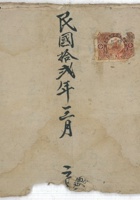 民國拾弍年三月